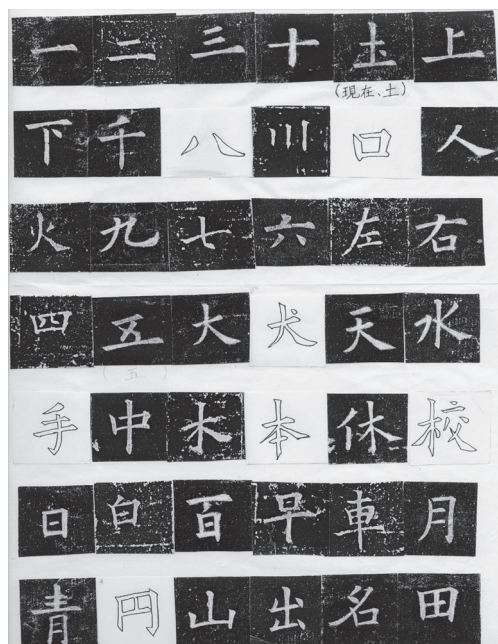 一 二 三 十 圡 上
(現在、土)
下 千 八 川 口 人
火 九 七 六 左 右
四 五 大 犬 天 水
( 五 )
手 中 木 本 休 校
日 白 百 早 車 月
青 円 山 出 名 田